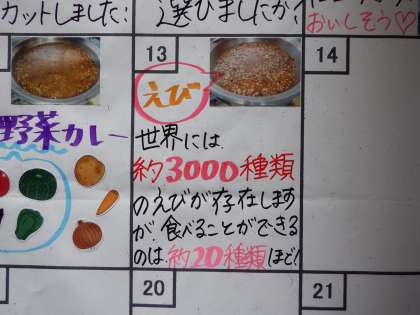 カットしました!
選びましたか?
おいしそう♡
13
14
えび
野菜カレー
世界には
約3000種類
のえびが存在します
が、食べることができる
のは、約20種類ほど!
20
21